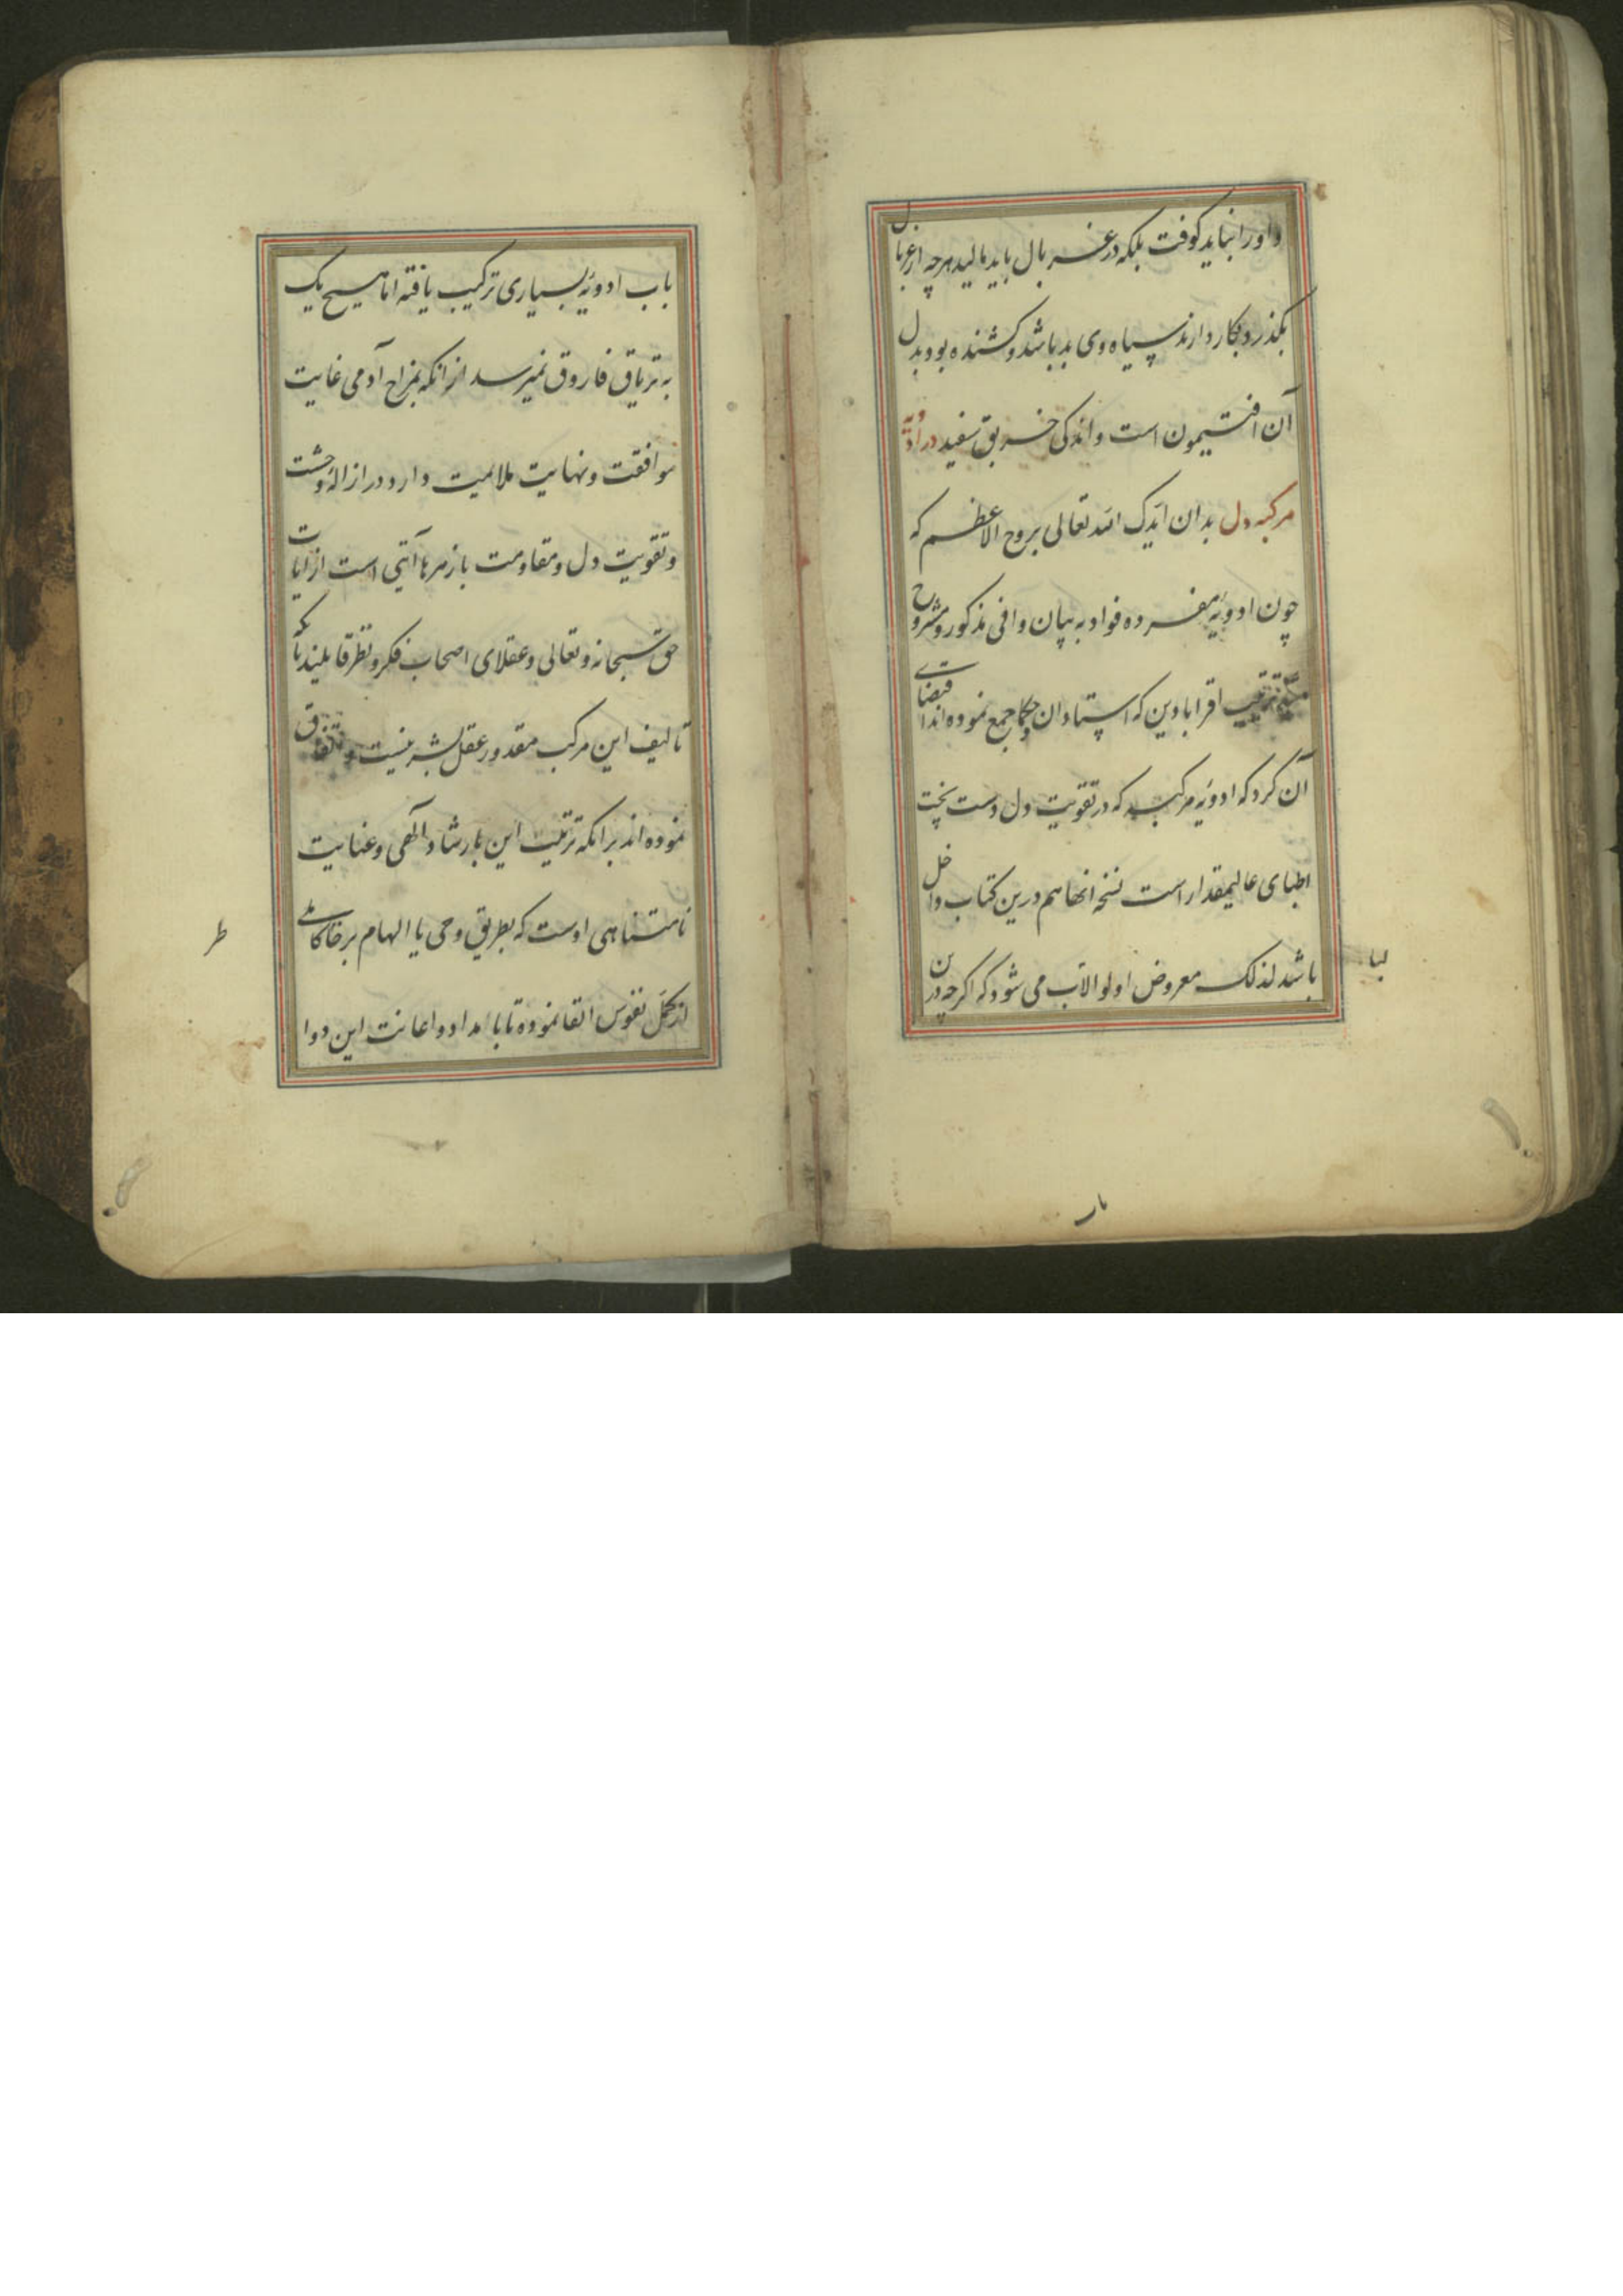 و او را نباید کوفت بلکه در غربال باید مالید هرچه از غربال
بگذرد بکار دارند سیاه وی بد باشد و کشنده بود و بدل
آن افتیمون است و اندکی خربق سفید در ادویه
مرکبه دل بدان ایدک الله تعالی بروح الاعظم که
چون ادویه مفرده فواد به بیان وافی مذکور و مشروح
ترتیب اقرابادین که استادان حکما جمع نموده اند اقتضای
آن کرد که ادویه مرکبه که در تقویت دل دست پخت
اطبای عالیمقدار است نسخه انها هم درین کتاب داخل
باشد لذلک معروض اولوالالباب می شود که اگرچه درین
لبا
باب
باب ادویه بسیاری ترکیب یافته اما هیچ یک
به تریاق فاروق نمیرسد از انکه بمزاج آدمی غایت
موافقت و نهایت ملایمیت دارد در ازاله وحشت
و تقویت دل و مقاومت با زهرها آیتی است از ایات
حق سبحانه و تعالی و عقلای اصحاب فکر و نظر قایلند بآنکه
تالیف این مرکب مقدور عقل بشر نیست و اتفاق
نموده اند برانکه ترتیب این بارشاد الهی و عنایت
نامتناهی اوست که بطریق وحی یا الهام بر خاطر کاملی
از کمل نفوس القا نموده تا با مداد و اعانت این دوا
ط